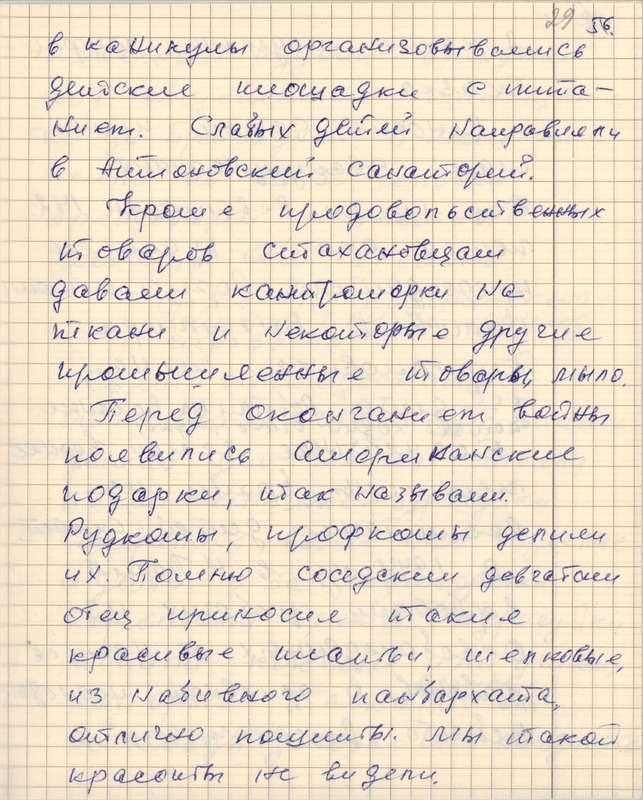 29 56.
в каникулы организовывались
детские площадки с пита-
нием. Слабых детей направляли
в Антоновский санаторий.
Кроме продовольственных
товаров стахановцам
давали контрамарки на
ткани и некоторые другие
промышленные товары, мыло.
Перед окончанием войны
появились американские
подарки, так называли.
Рудкомы, профкомы делили
их. Помню соседским девчатам
отец приносил такие
красивые платья, шелковые,
из набивного панбархата,
отлично пошиты. Мы такой
красоты не видели.